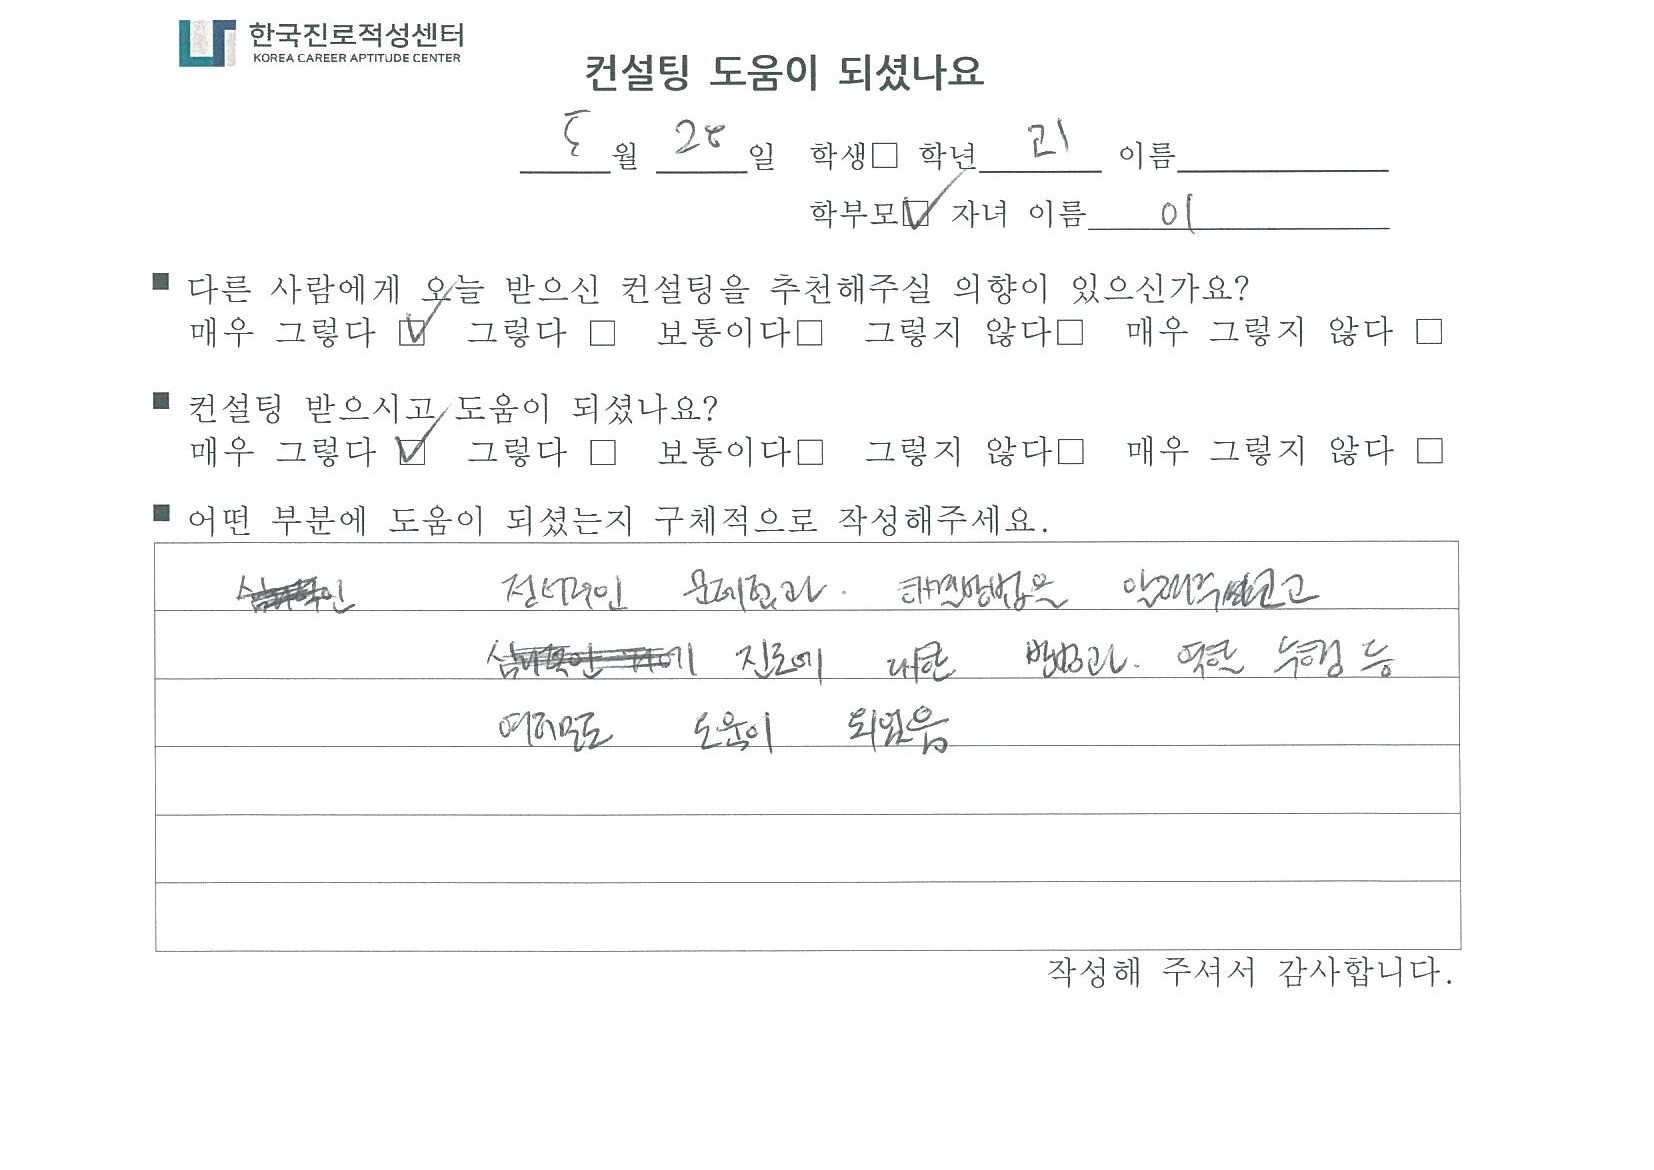 한국진로적성센터
KOREA CAREER APTITUDE CENTER
컨설팅 도움이 되셨나요
5월 28일 학생□ 학년 고1 이름
학부모☑ 자녀 이름 이
■ 다른 사람에게 오늘 받으신 컨설팅을 추천해주실 의향이 있으신가요?
매우 그렇다 ☑ 그렇다 □ 보통이다□ 그렇지 않다□ 매우 그렇지 않다 □
■ 컨설팅 받으시고 도움이 되셨나요?
매우 그렇다 ☑ 그렇다 □ 보통이다□ 그렇지 않다□ 매우 그렇지 않다 □
■ 어떤 부분에 도움이 되셨는지 구체적으로 작성해주세요.
문제점과 해결방법을 알려주시고
진로에 대한 방법과 역할 수행 등
여러모로 도움이 되었음
작성해 주셔서 감사합니다.